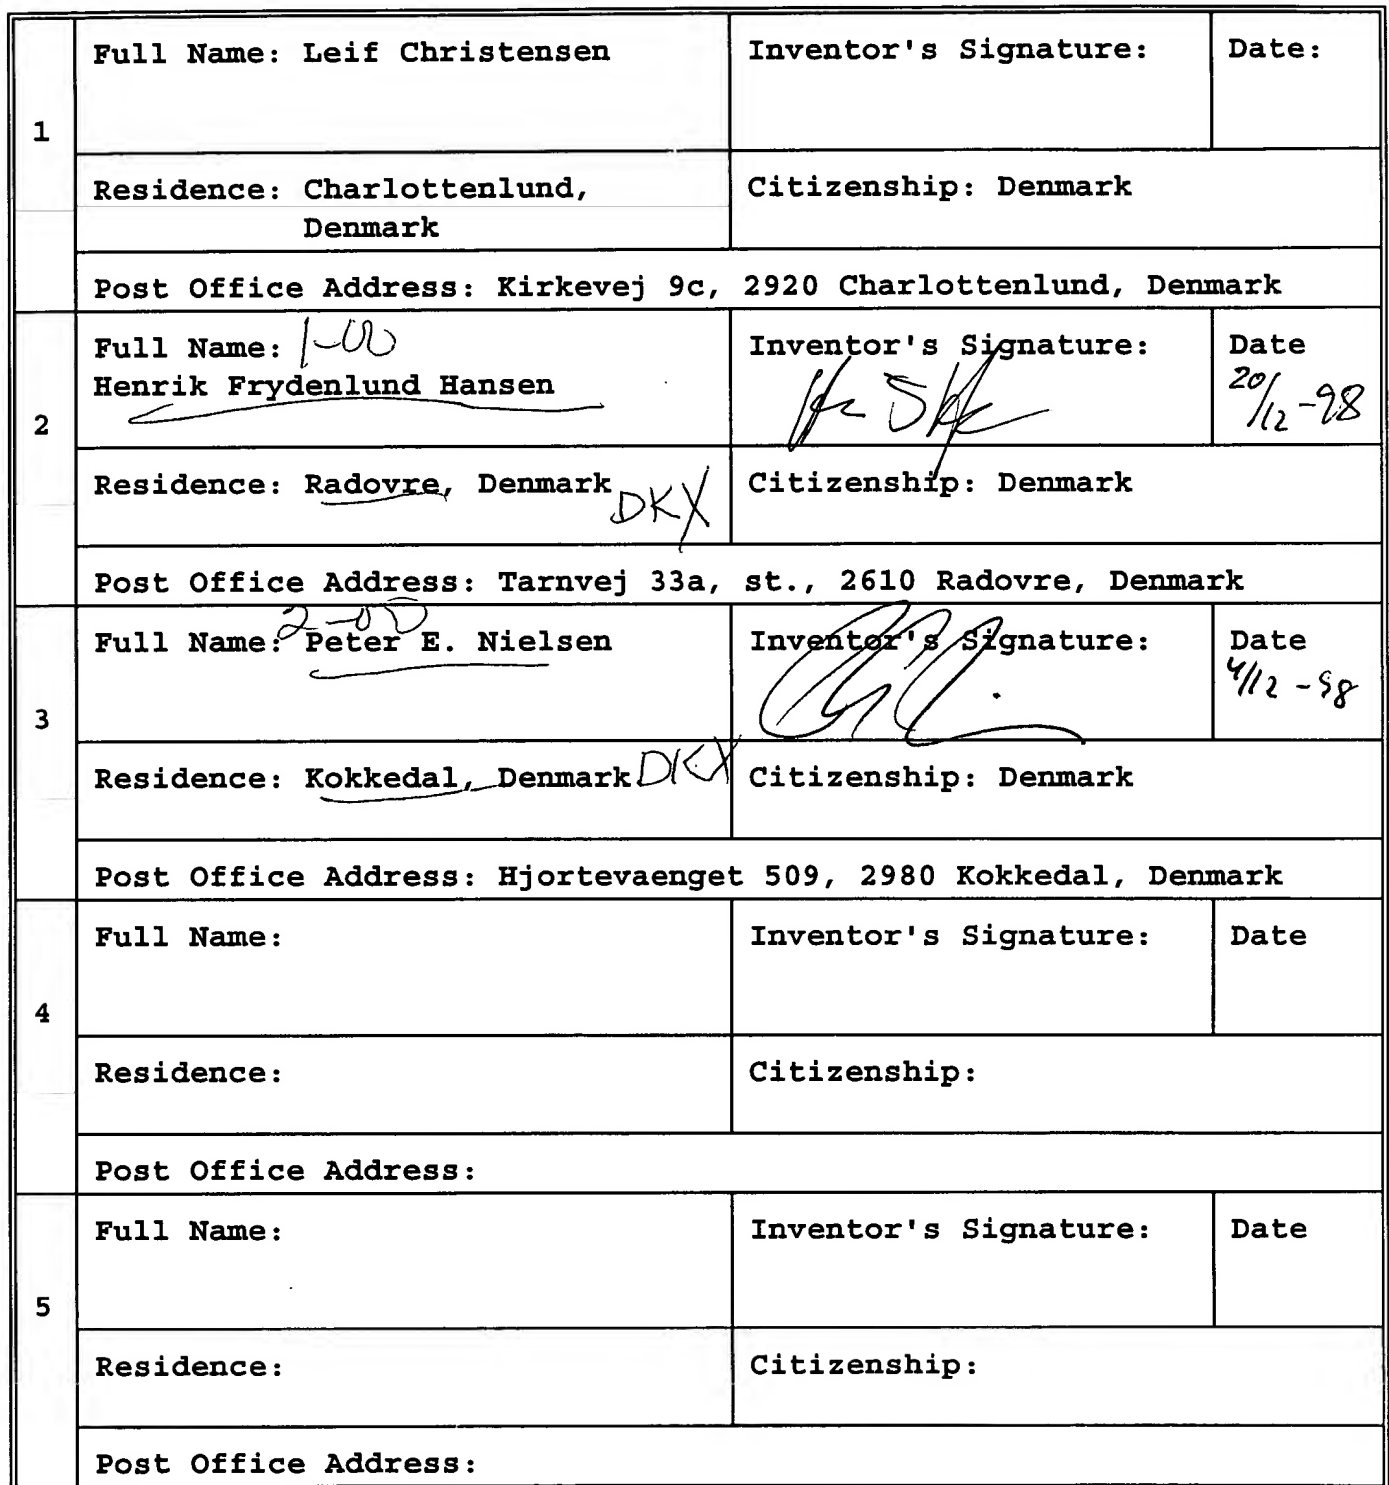 1
Full Name: Leif Christensen
Inventor's Signature:
Date:
Residence: Charlottenlund,
Denmark
Citizenship: Denmark
Post Office Address: Kirkevej 9c, 2920 Charlottenlund, Denmark
2
Full Name: 1-00
Henrik Frydenlund Hansen
Inventor's Signature:
Date
20/12-98
Residence: Radovre, Denmark DKX
Citizenship: Denmark
Post Office Address: Tarnvej 33a, st., 2610 Radovre, Denmark
3
2-00
Full Name: Peter E. Nielsen
Inventor's Signature:
Date
4/12-98
Residence: Kokkedal, Denmark DKX
Citizenship: Denmark
Post Office Address: Hjortevaenget 509, 2980 Kokkedal, Denmark
4
Full Name:
Inventor's Signature:
Date
Residence:
Citizenship:
Post Office Address:
5
Full Name:
Inventor's Signature:
Date
Residence:
Citizenship:
Post Office Address: